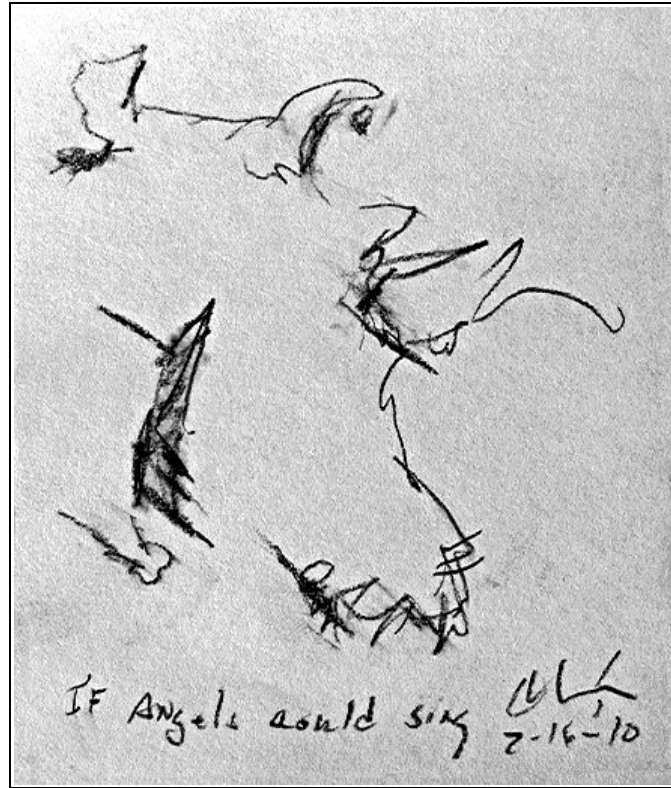 IF Angels could sing
2-16-10